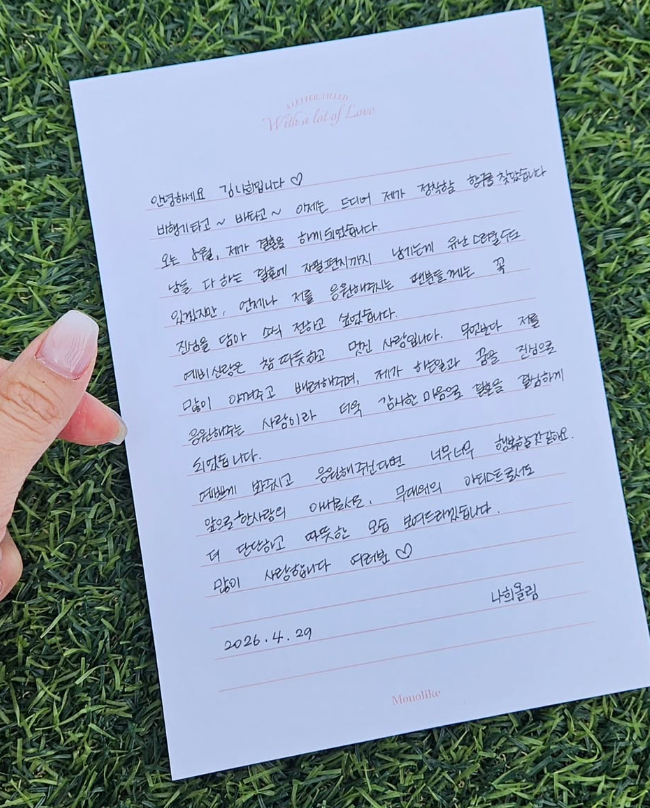 A LETTER FILLED
With a lot of Love
안녕하세요 김나희입니다 ♡
비행기타고~ 배타고~ 이제는 드디어 제가 정착할 항구를 찾았습니다
오는 5월, 제가 결혼을 하게되었습니다.
남들 다 하는 결혼에 자필편지까지 남기는게 유난스러울수도
있겠지만, 언제나 저를 응원해주시는 팬분들께는 꼭
진심을 담아 소식 전하고 싶었습니다.
예비신랑은 참 따뜻하고 멋진 사람입니다. 무엇보다 저를
많이 아껴주고 배려해주며, 제가 하는일과 꿈을 진심으로
응원해주는 사람이라 더욱 감사한 마음으로 결혼을 결심하게
되었습니다.
예쁘게 봐주시고 응원해주신다면 너무너무 행복할것같아요.
앞으로 한사람의 아내로서도, 무대위의 아티스트로서도
더 단단하고 따뜻한 모습 보여드리겠습니다.
많이 사랑합니다 여러분 ♡
나희올림
2026.4.29
Monolike